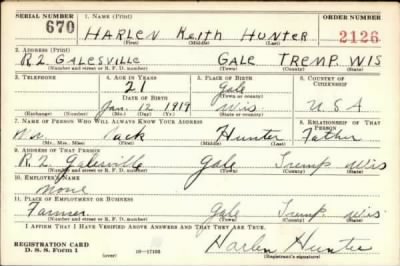 SERIAL NUMBER 1. NAME (Print) ORDER NUMBER
670 HARLEN Keith HUNTER 2126
(First) (Middle) (Last)
2. ADDRESS (Print)
R2 GALESVILLE GALE TREMP. WIS
(Number and street or R. F. D. number) (Town) (County) (State)
3. TELEPHONE 4. AGE IN YEARS 5. PLACE OF BIRTH 6. COUNTRY OF CITIZENSHIP
21 Gale
DATE OF BIRTH (Town or county)
Jan. 12 1919 Wis U S A
(Exchange) (Number) (Mo.) (Day) (Yr.) (State or country)
7. NAME OF PERSON WHO WILL ALWAYS KNOW YOUR ADDRESS 8. RELATIONSHIP OF THAT PERSON
Mr. Jack Hunter Father
(Mr. Mrs. Miss) (First) (Middle) (Last)
9. ADDRESS OF THAT PERSON
R2 Galesville Gale Tremp Wis
(Number and street or R. F. D. number) (Town) (County) (State)
10. EMPLOYER'S NAME
None
11. PLACE OF EMPLOYMENT OR BUSINESS
Farmer Gale Tremp. Wis
(Number and street or R. F. D. number) (Town) (County) (State)
I AFFIRM THAT I HAVE VERIFIED ABOVE ANSWERS AND THAT THEY ARE TRUE.
REGISTRATION CARD
D. S. S. Form 1 (over) Harlen Hunter
(Registrant's signature)